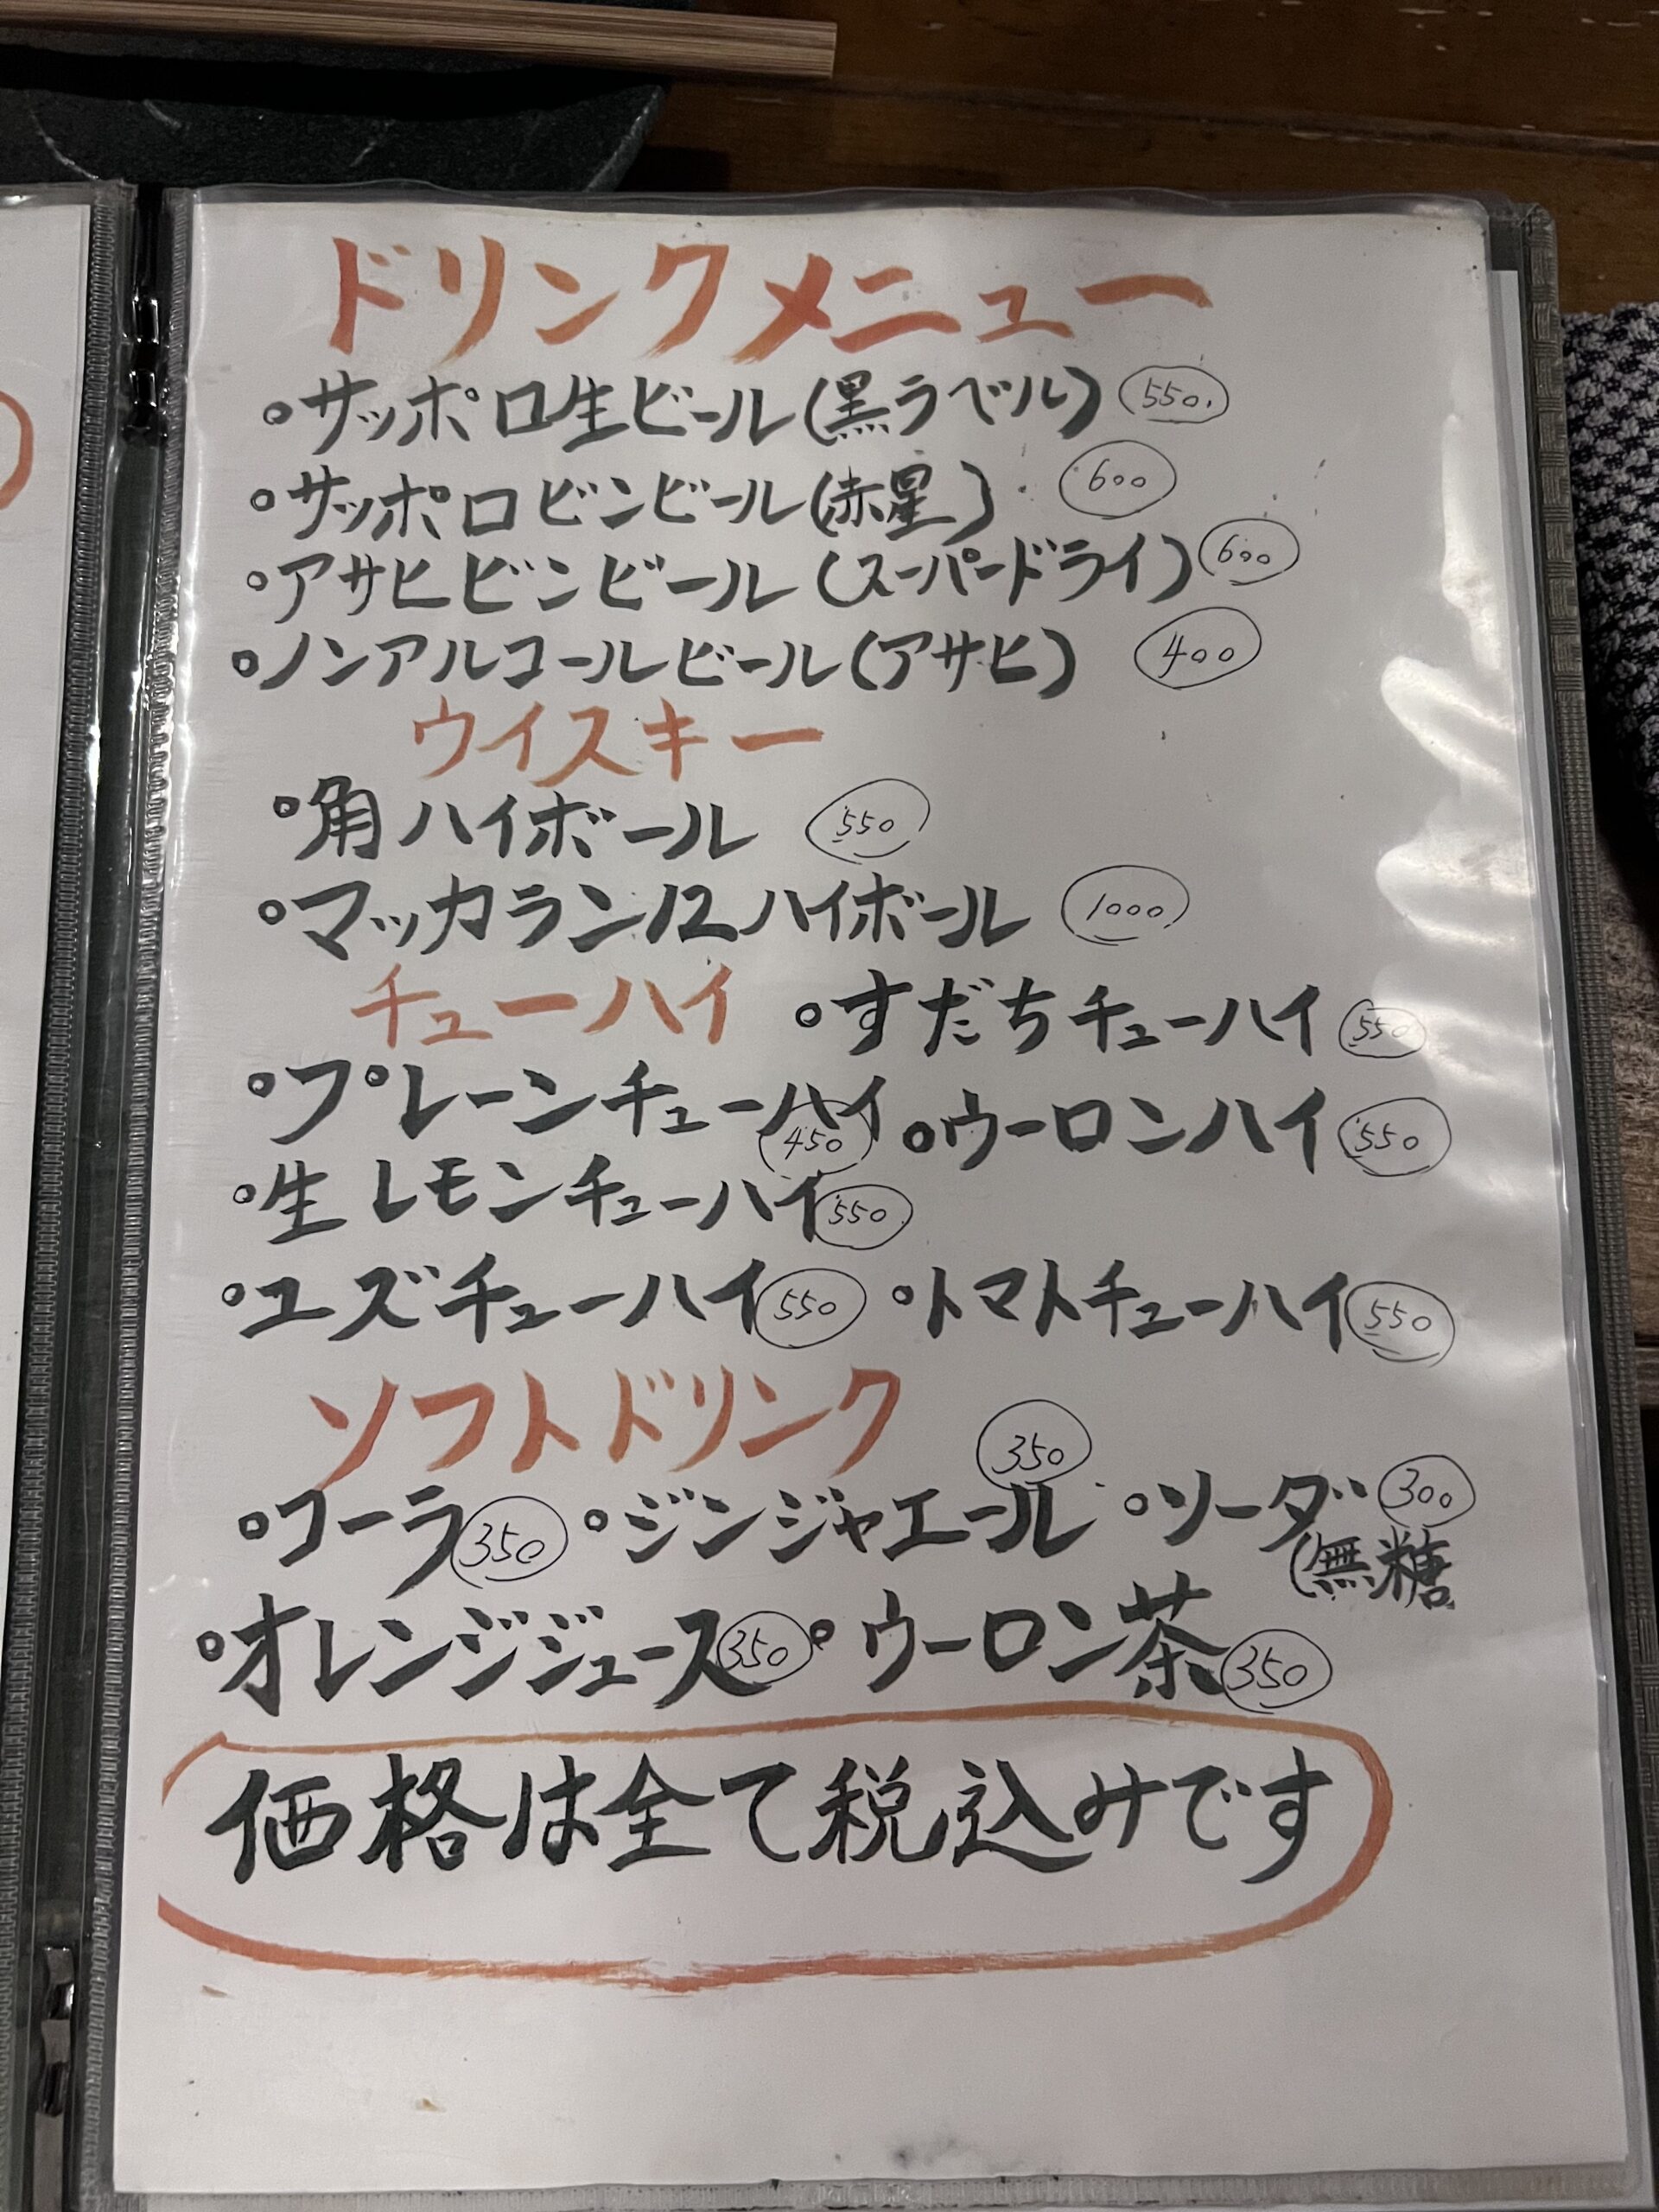 ドリンクメニュー
・サッポロ生ビール(黒ラベル) 550
・サッポロビンビール(赤星) 600
・アサヒビンビール(スーパードライ) 600
・ノンアルコールビール(アサヒ) 400
ウイスキー
・角ハイボール 550
・マッカラン12ハイボール 1000
チューハイ ・すだちチューハイ 550
・プレーンチューハイ 450 ・ウーロンハイ 550
・生レモンチューハイ 550
・ユズチューハイ 550 ・トマトチューハイ 550
ソフトドリンク
・コーラ 350 ・ジンジャエール 350 ・ソーダ 300
(無糖
・オレンジジュース 350 ・ウーロン茶 350
価格は全て税込みです